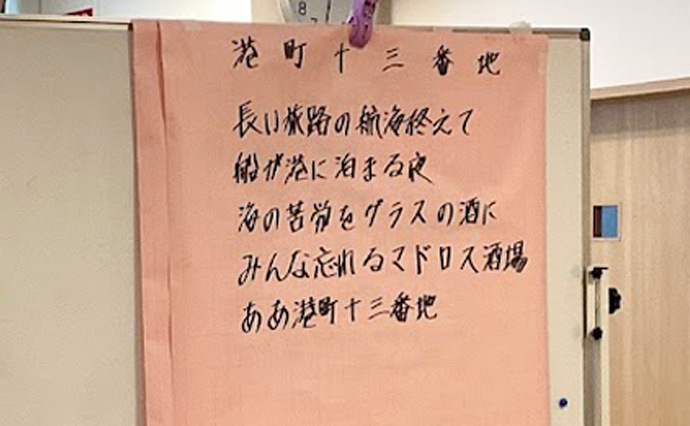 港町十三番地
長い旅路の航海終えて
船が港に泊まる夜
海の苦労をグラスの酒に
みんな忘れるマドロス酒場
ああ港町十三番地
8
7